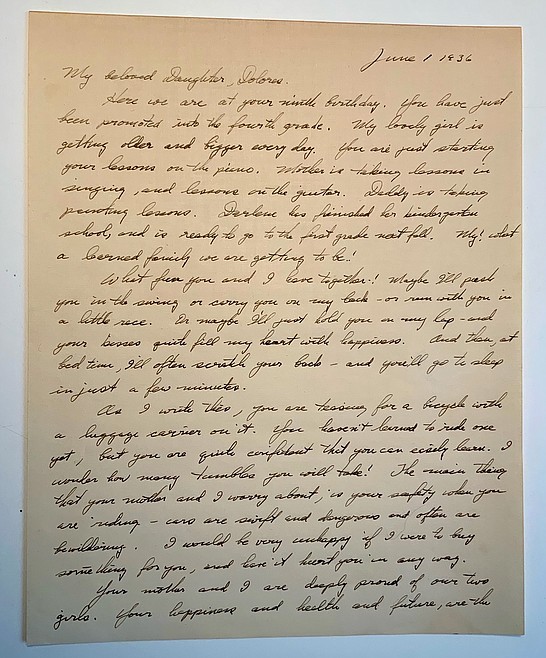 June 1 1936
My beloved Daughter, Dolores.
Here we are at your ninth birthday. You have just
been promoted into the fourth grade. My lovely girl is
getting older and bigger every day. You are just starting
your lessons on the piano. Mother is taking lessons in
singing, and lessons on the guitar. Daddy is taking
painting lessons. Darlene has finished her kindergarten
school, and is ready to go to the first grade next fall. My! what
a learned family we are getting to be!
What fun you and I have together! Maybe I'll push
you in the swing or carry you on my back - or run with you in
a little race. Or maybe I'll just hold you on my lap - and
your kisses quite fill my heart with happiness. And then, at
bed time, I'll often scratch your back - and you'll go to sleep
in just a few minutes.
As I write this, you are teasing for a bicycle with
a luggage carrier on it. You haven't learned to ride one
yet, but you are quite confident that you can easily learn. I
wonder how many tumbles you will take! The main thing
that your mother and I worry about, is your safety when you
are riding - cars are swift and dangerous and often are
bewildering. I would be very unhappy if I were to buy
something for you, and have it hurt you in any way.
Your mother and I are deeply proud of our two
girls. Your happiness and health and future, are the